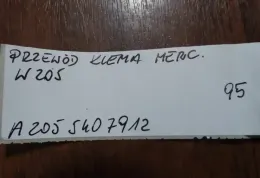 PRZEWÓD KLEMA MERC.
W205
95
A 205 540 7912